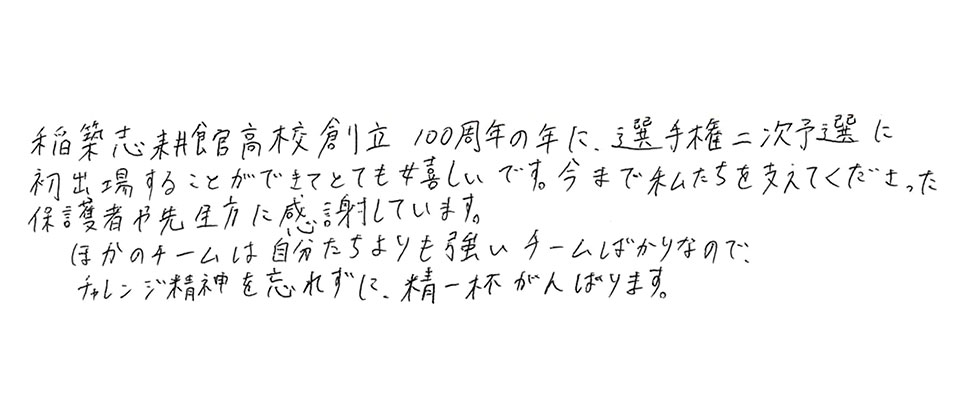 稲築志耕館高校創立 100周年の年に、選手権二次予選に
初出場することができてとても嬉しいです。今まで私たちを支えてくださった
保護者や先生方に感謝しています。
ほかのチームは自分たちよりも強いチームばかりなので、
チャレンジ精神を忘れずに、精一杯がんばります。